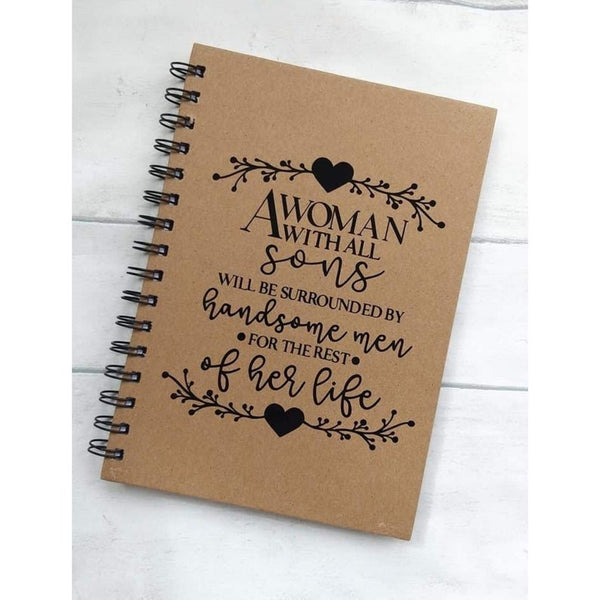 A WOMAN
WITH ALL
sons
WILL BE SURROUNDED BY
handsome men
• FOR THE REST •
of her life